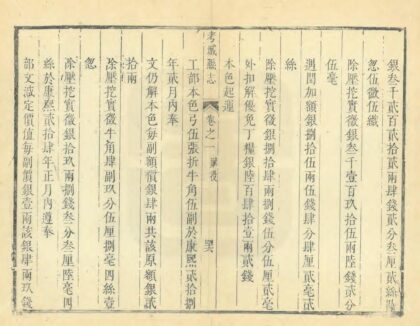 銀叁千貳百叁拾肆兩貳錢貳分叁釐貳絲肆
忽伍微伍纖
除壓挖實徵銀叁千壹百玖拾伍兩陸錢貳分
伍毫
遇閏加額銀捌拾伍兩伍錢肆分肆釐貳毫
絲
除壓挖實徵銀捌拾肆兩捌錢伍分伍釐貳毫
外扣解優免丁糧銀陸百肆拾壹兩貳錢
本色起運
考城縣志 卷之一 賦役
工部本色弓伍張折牛角伍副於康熙貳拾捌
年貳月內奉
文仍解本色每副額價銀肆兩共該原額銀貳
拾兩
除壓挖實徵牛角肆副玖分伍釐捌毫四絲壹
忽
除壓挖實徵銀拾玖兩捌錢叁分叁釐陸毫四
絲於康熙貳拾肆年正月內遵奉
部文減定價值每副價銀壹兩該銀肆兩玖錢